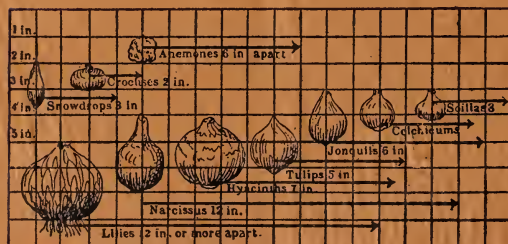 1 in.
2 in.
Anemones 6 in apart
3 in
Crocuses 2 in.
4 in
Snowdrops 3 in
Scillas 3
Colchicums
5 in.
Jonquils 6 in
Tulips 5 in
Hyacinths 7 in
Narcissus 12 in.
Lilies 12 in. or more apart.